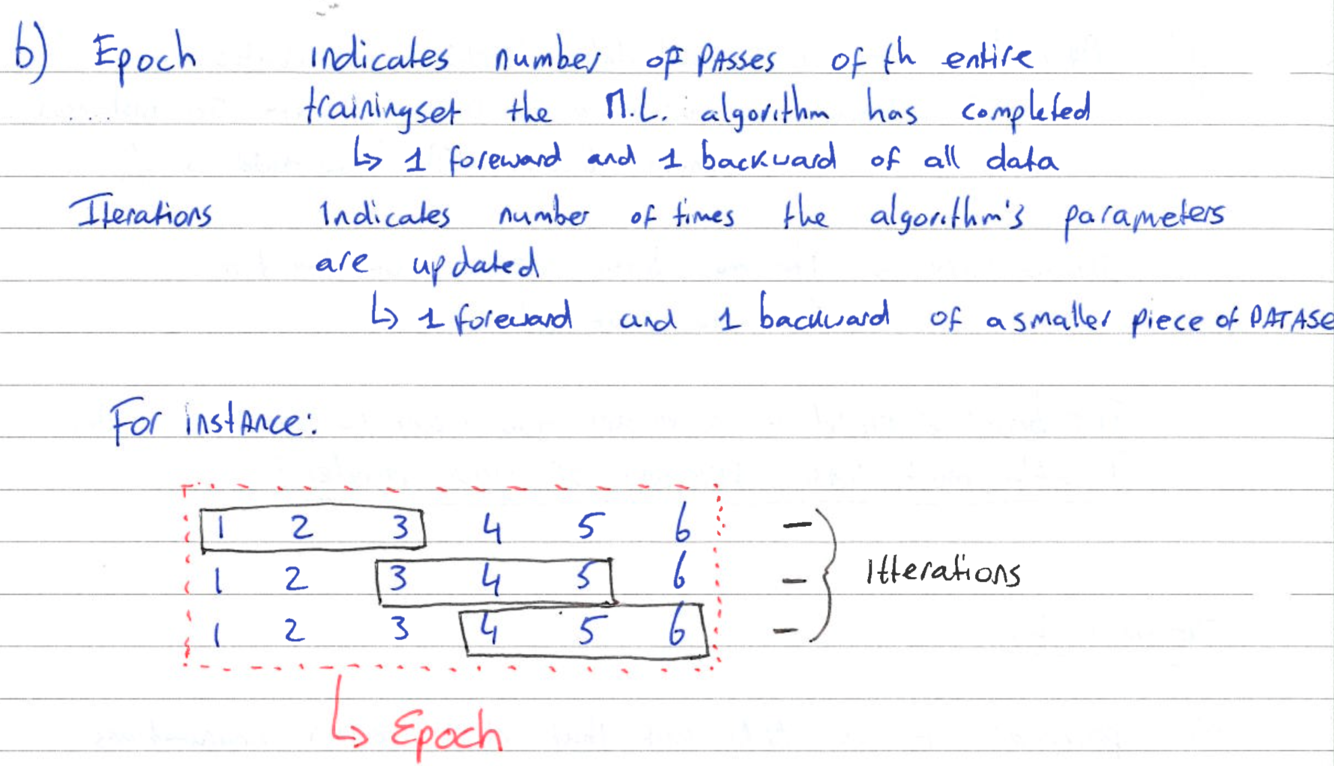 b) Epoch indicates number of PASSES of th entire
trainingset the M.L. algorithm has completed
↳ 1 foreward and 1 backward of all data
Iterations Indicates number of times the algorithm's parameters
are updated
↳ 1 foreward and 1 backward of a smaller piece of DATASE
For instance:
1 2 3 4 5 6 -
1 2 3 4 5 6 - Itterations
1 2 3 4 5 6 -
↳ Epoch